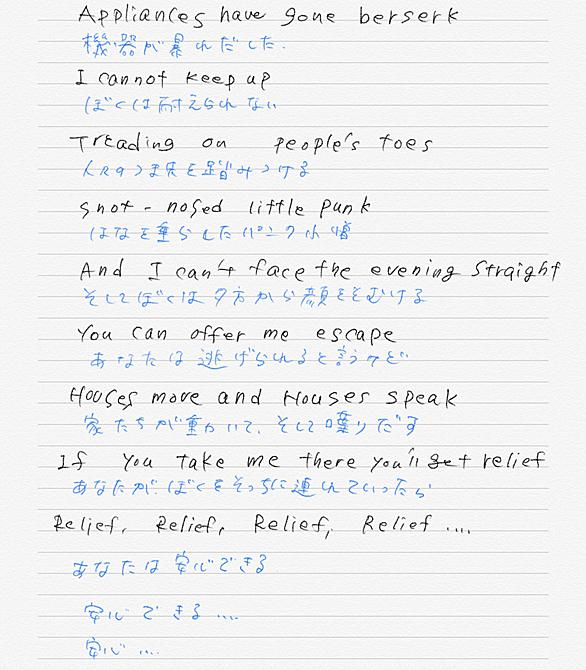 Appliances have gone berserk
機器が暴れだした.
I cannot keep up
ぼくは耐えられない
Treading on people's toes
人々のつま先を踏みつける
snot-nosed little punk
はなを垂らしたパンク小僧
And I can't face the evening straight
そしてぼくは夕方から顔をそむける
You can offer me escape
あなたは逃げられると言うけど
Houses move and Houses speak
家たちが動いて、そして喋りだす
If you take me there you'll get relief
あなたが、ぼくをそっちに連れていったら
Relief, Relief, Relief, Relief ....
あなたは安心できる
安心できる ....
安心 ....